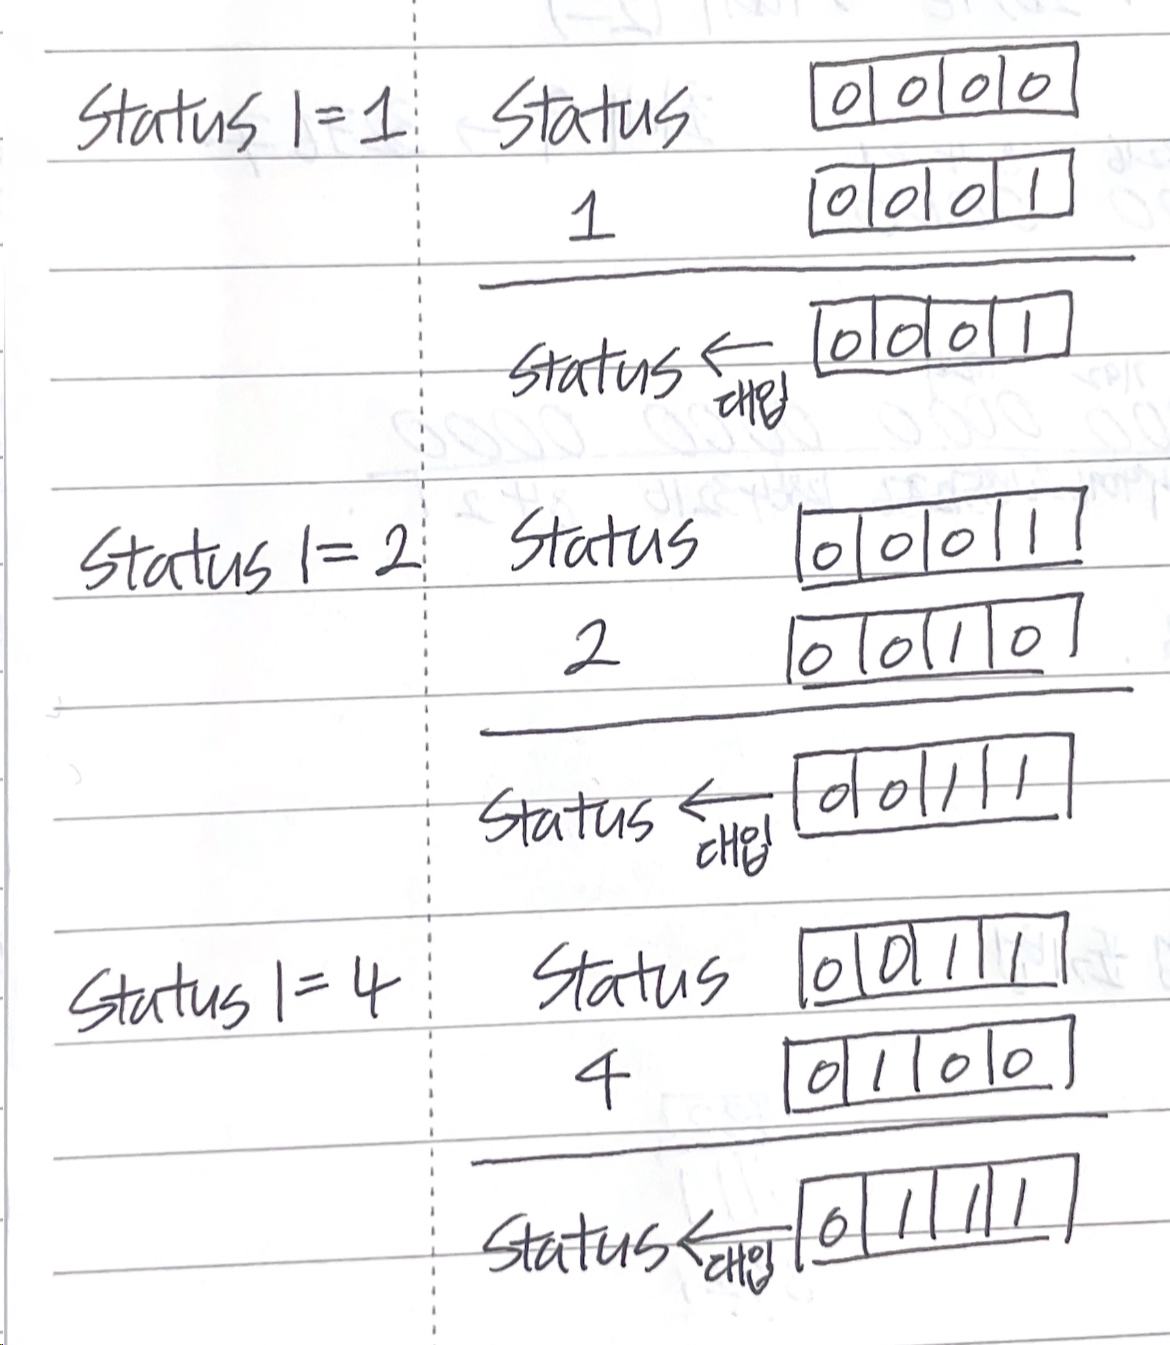 Status |= 1 Status 0 0 0 0
1 0 0 0 1
Status ← 0 0 0 1
대입
Status |= 2 Status 0 0 0 1
2 0 0 1 0
Status ← 0 0 1 1
대입
Status |= 4 Status 0 0 1 1
4 0 1 0 0
Status ← 0 1 1 1
대입